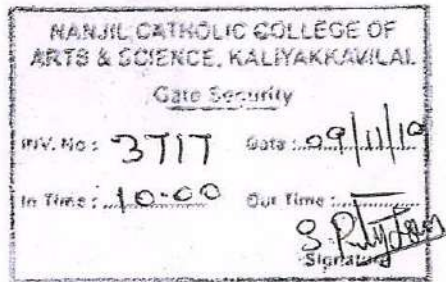 NANJIL CATHOLIC COLLEGE OF
ARTS & SCIENCE, KALIYAKKAVILAI.
Gate Security
INV. No : Date : 09/11/
In Time : 10-00 Out Time :
Signature